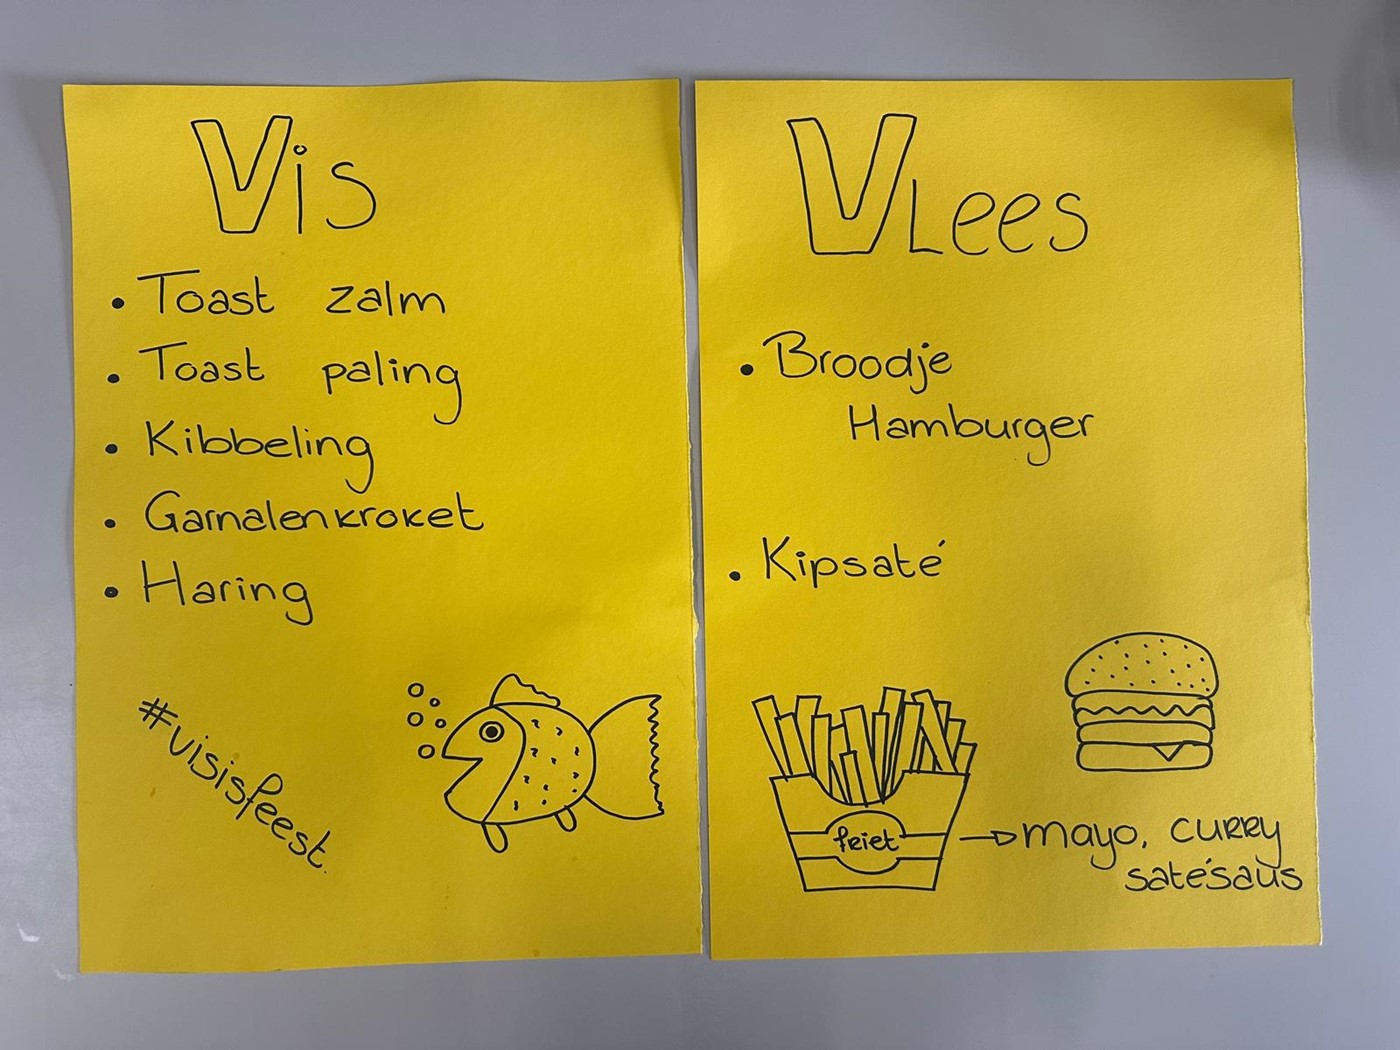 Vis
• Toast zalm
• Toast paling
• Kibbeling
• Garnalenkroket
• Haring
#visisfeest.
Vlees
• Broodje
Hamburger
• Kipsaté
friet
mayo, curry
satésaus